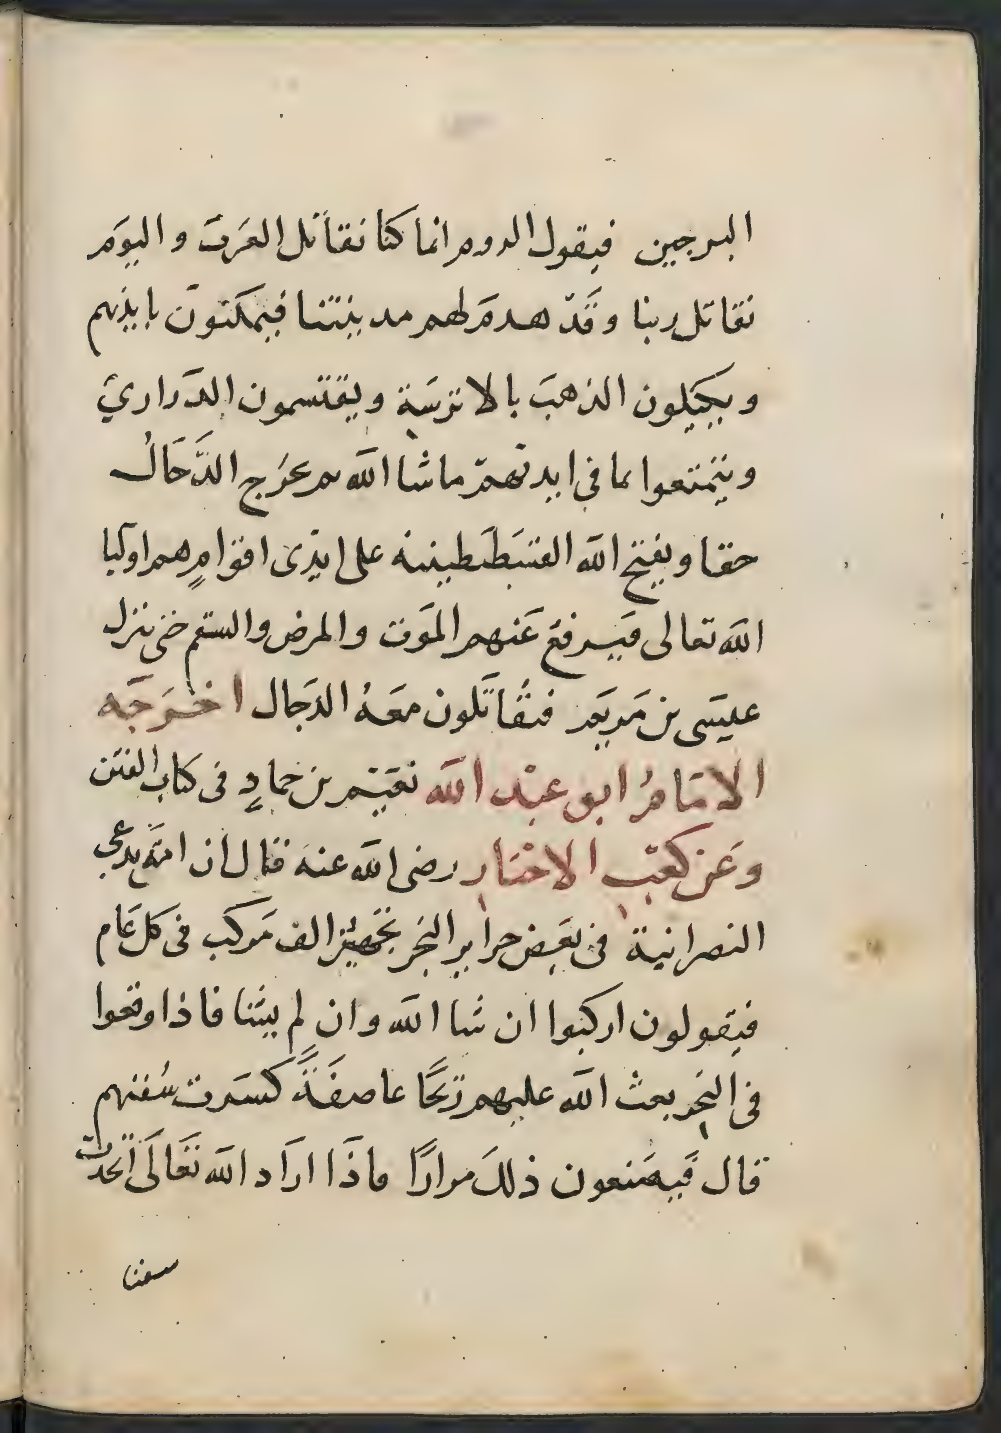 البرجين فيقول الروم انما كنا نقاتل العرب واليوم
نقاتل ربنا وقد هدم لهم مدينتنا فيمكثون بايديهم
ويكيلون الذهب بالاترسة ويقتسمون الذراري
ويتمتعوا بما في ايديهم ماشا الله ثم يخرج الدجال
حقا ويفتح الله القسطنطينية على ايدى اقوام هم اوليا
الله تعالى فيرفع عنهم الموت والمرض والسقم حتى ينزل
عيسى بن مريم فيقاتلون معه الدجال اخرجه
الامام ابو عبد الله نعيم بن حماد في كتاب الفتن
وعن كعب الاحبار رضى الله عنه قال ان امة تدعى
النصرانية في بعض جزاير البحر تجهيز الف مركب في كل عام
فيقولون اركبوا ان شا الله وان لم يشا فاذا وقعوا
في البحر بعث الله عليهم ريحا عاصفة كسرت سفنهم
قال فيصنعون ذلك مرارا فاذا اراد الله تعالى اتخذت
سفنا